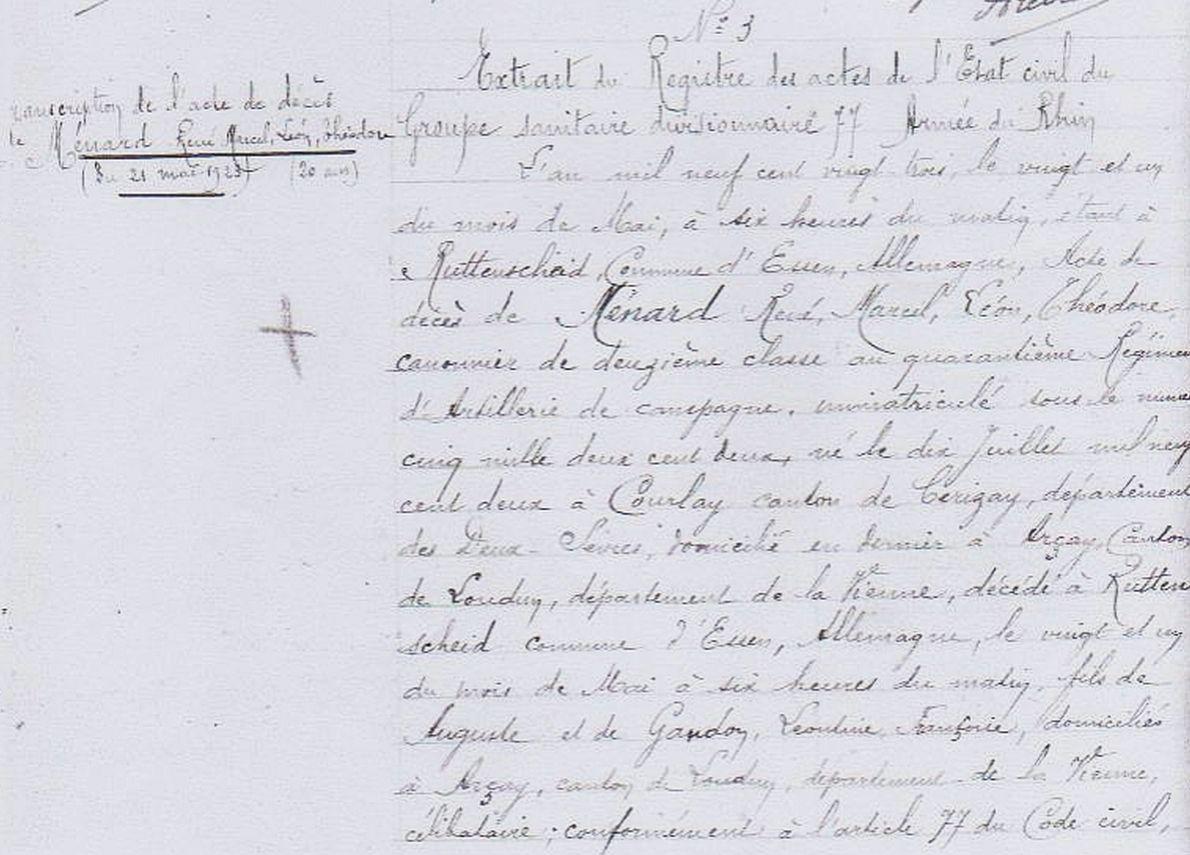 Nº 3
Transcription de l'acte de décès
de Ménard René Marcel, Léon, Théodore
(Du 21 mai 1923) (20 ans)
Extrait du Registre des actes de l'Etat civil du
Groupe sanitaire divisionnaire 77 Armée du Rhin
L'an mil neuf cent vingt trois, le vingt et un
du mois de Mai, à six heures du matin, étant à
Ruttenscheid, Commune d'Essen, Allemagne, Acte de
décès de Ménard René, Marcel, Léon, Théodore,
canonnier de deuxième classe au quarantième Régimen
d'Artillerie de campagne, immatriculé sous le numé
cinq mille deux cent deux, né le dix Juillet mil neuf
cent deux à Courlay canton de Cerizay, département
des Deux-Sèvres, domicilié en dernier à Arçay, Canton
de Loudun, département de la Vienne, décédé à Rutten
scheid commune d'Essen, Allemagne, le vingt et un
du mois de Mai à six heures du matin, fils de
Auguste et de Gandon, Léontine, Françoise, domiciliés
à Arçay, canton de Loudun, département de la Vienne,
célibataire ; conformément à l'article 77 du Code civil,